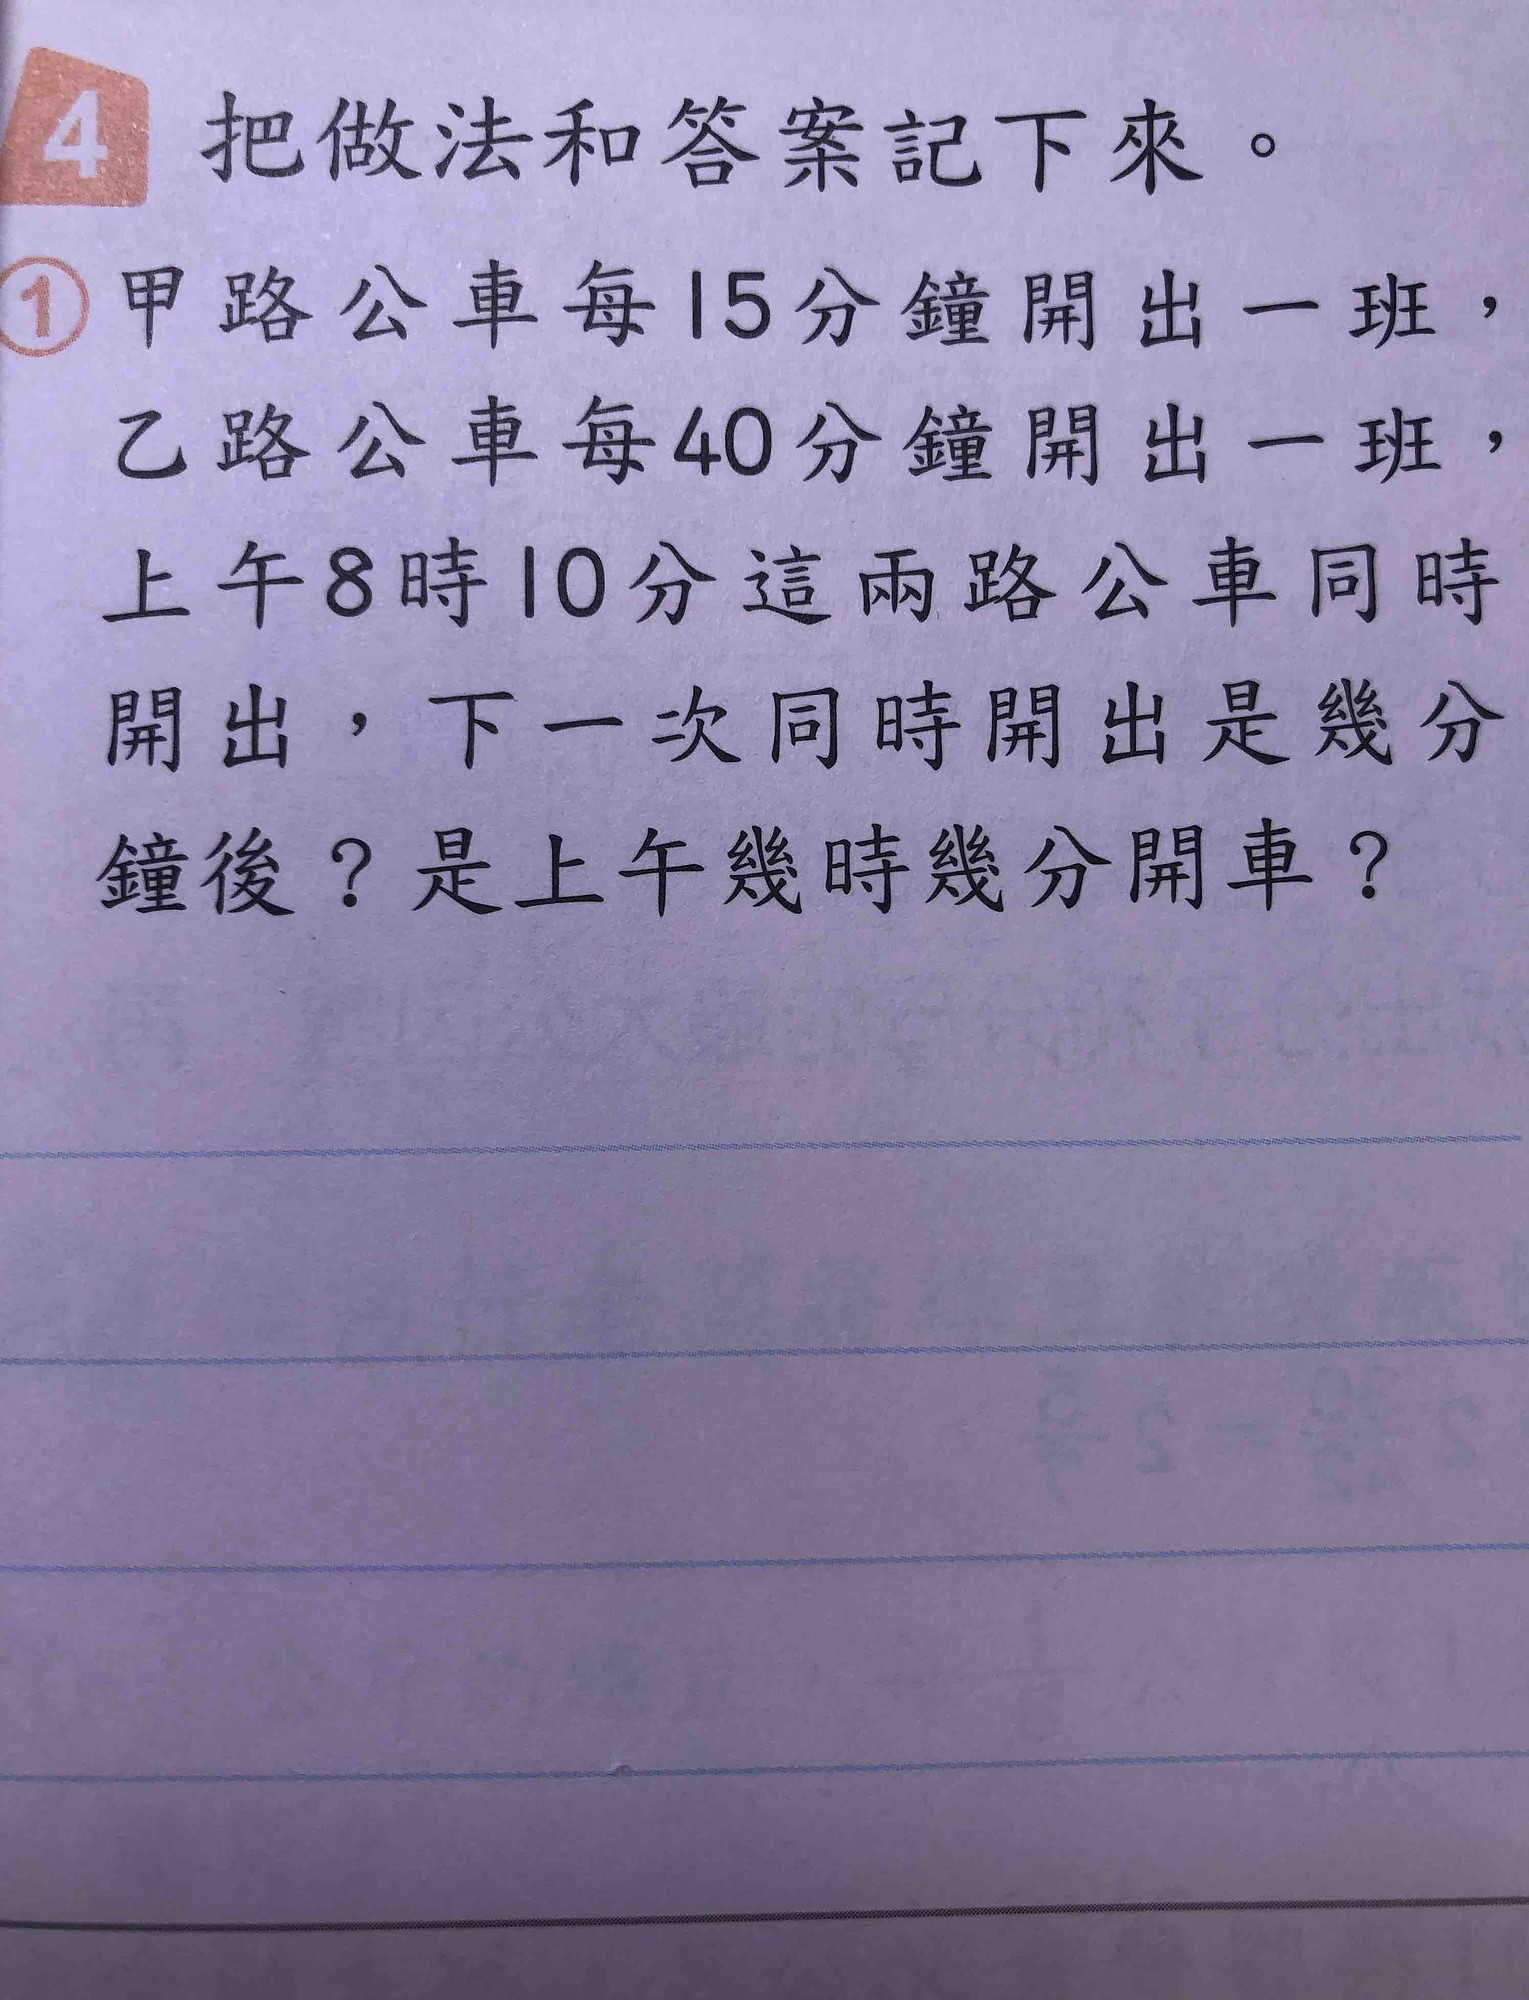 4 把做法和答案記下來。
① 甲路公車每15分鐘開出一班，
乙路公車每40分鐘開出一班，
上午8時10分這兩路公車同時
開出，下一次同時開出是幾分
鐘後？是上午幾時幾分開車？